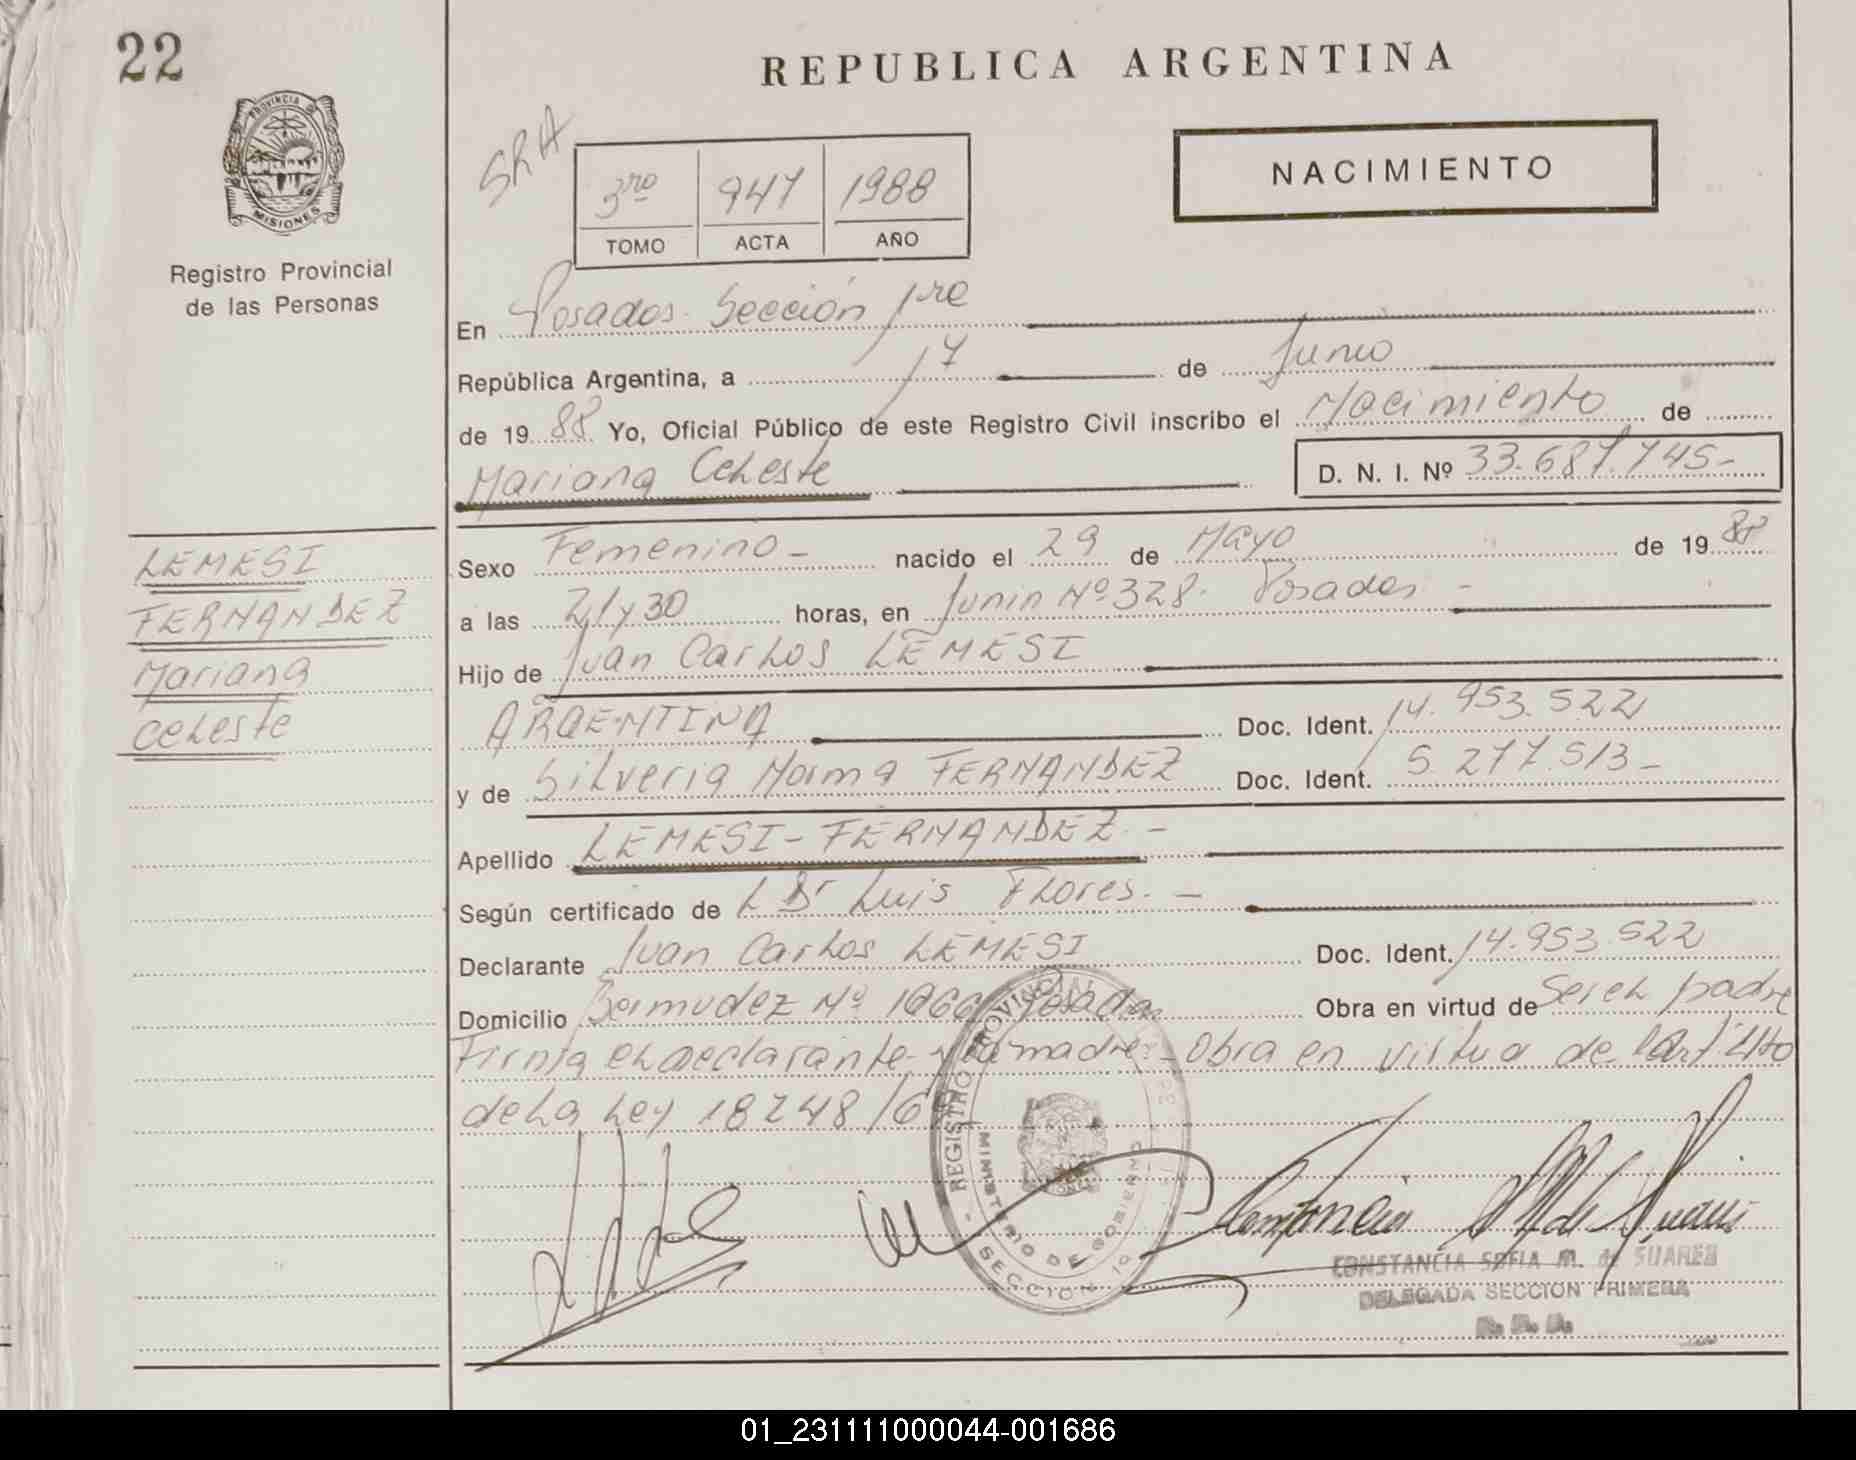 22
REPUBLICA ARGENTINA
PROVINCIA DE
MISIONES
Registro Provincial
de las Personas
SRA
3ro 947 1988
TOMO ACTA AÑO
NACIMIENTO
En Posadas. Sección 1ra
República Argentina, a 17 de Junio
de 19 88 Yo, Oficial Público de este Registro Civil inscribo el Nacimiento de
Mariana Celeste D. N. I. Nº 33.687.745-
LEMESI
FERNANDEZ
Mariana
Celeste
Sexo Femenino- nacido el 29 de Mayo de 19 88
a las 21 y 30 horas, en Junin Nº 328. Posadas -
Hijo de Juan Carlos LEMESI
ARGENTINA Doc. Ident. 14.953.522
y de Silveria Norma FERNANDEZ Doc. Ident. 5.277.513-
Apellido LEMESI-FERNANDEZ.-
Según certificado de L Dr Luis Flores.-
Declarante Juan Carlos LEMESI Doc. Ident. 14.953.522
Domicilio Bermudez Nº Posadas Obra en virtud de Ser el padre
Firma el declarante y la madre - Obra en virtud de l art 4to
de La Ley 18248/69
REGISTRO PROVINCIAL
MINISTERIO DE GOBIERNO
SECCION 1ª
CONSTANCIA SOFIA M. de SUAREZ
DELEGADA SECCION PRIMERA
01_231111000044-001686